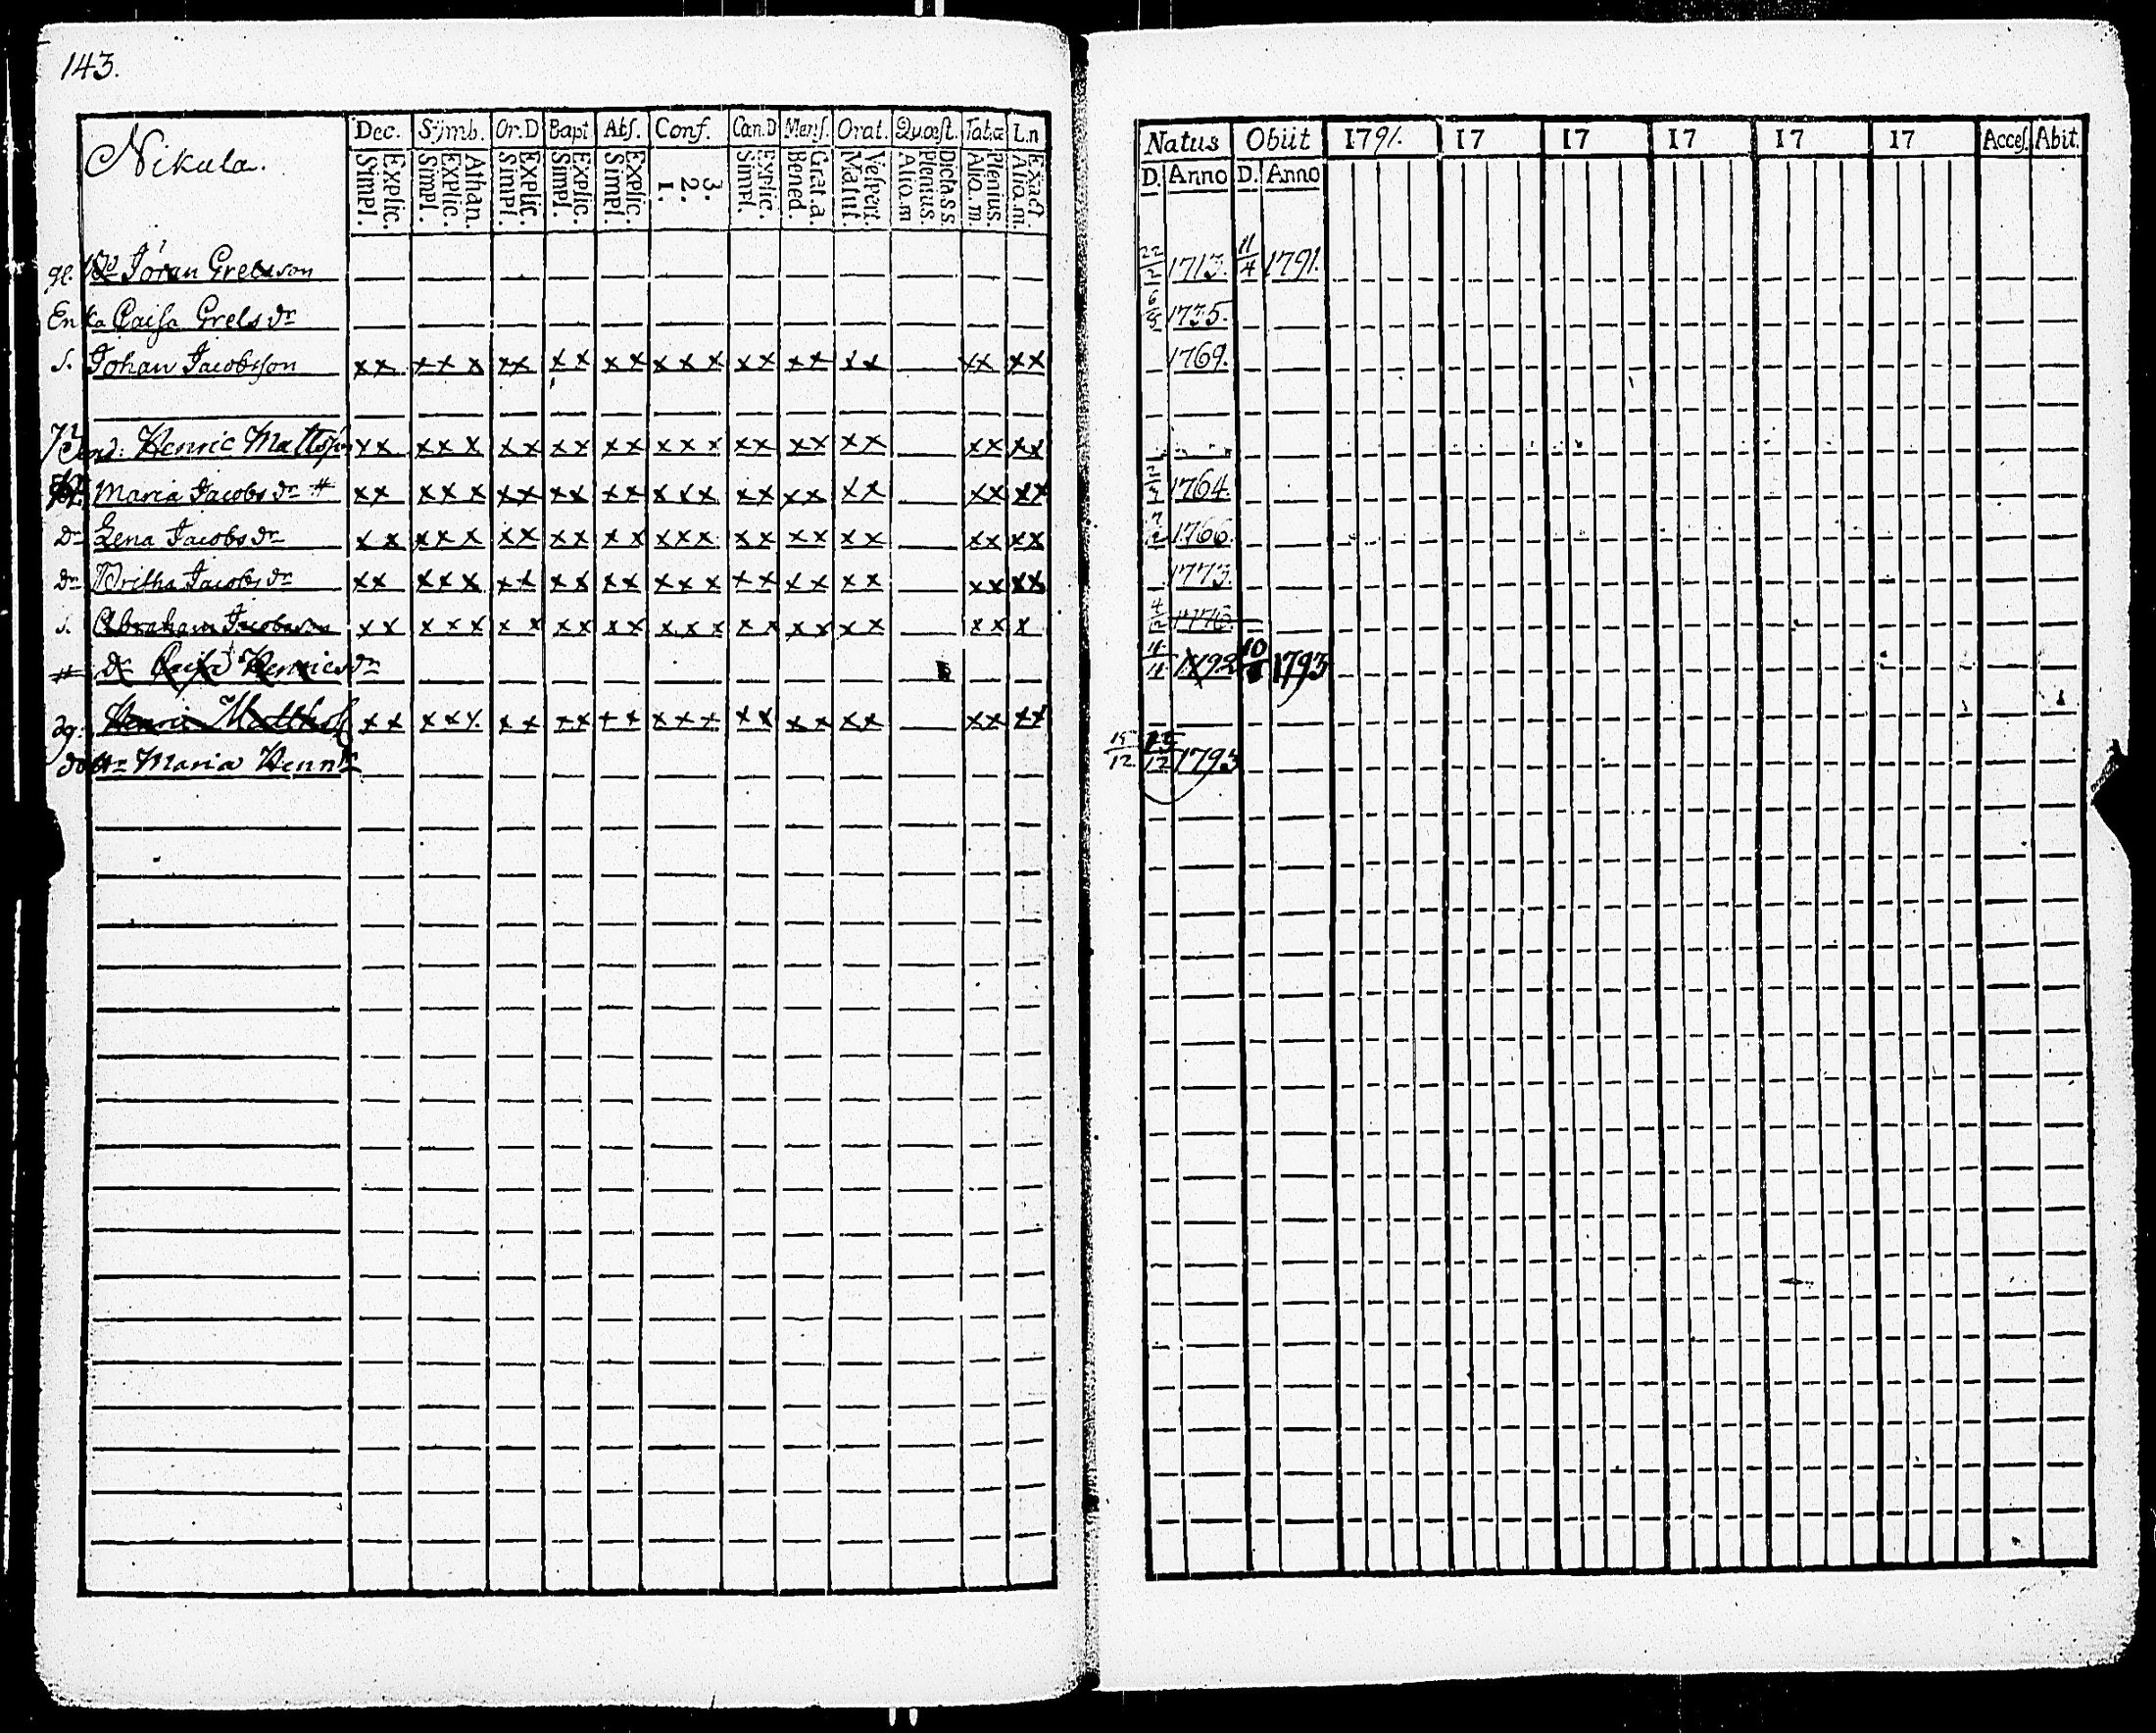 143.
Nikula.
Dec. Symb. Or.D Bapt Abs. Conf. Can.D Mens. Orat. Quæst. Tabæ L.n
Explic. Simpl. Athan. Explic. Simpl. Explic. Simpl. Explic. Simpl. Explic. Simpl. 3. 2. 1. Explic. Simpl. Grat.a. Bened. Vespert. Matut. Dicta s s. Plenius. Alio.m Plenius. Alio.m. Exact Alio.m.
Natus Obiit 1791. 17 17 17 17 17 Acces. Abit.
D. Anno D. Anno
gl. Jöran Grelsson 1713. 11/4 1791.
Enka Caisa Grels dr 1735.
S. Johan Jacobsson xx xxx xx xx xx xxx xx xx xx xx xx 1769.
Henric Mattsson xx xxx xx xx xx xxx xx xx xx xx xx
Maria Jacobs dr # xx xxx xx xx xx xxx xx xx xx xx xx 1764.
dr Lena Jacobs dr xx xxx xx xx xx xxx xx xx xx xx xx 1766.
dr Britha Jacobs dr xx xxx xx xx xx xxx xx xx xx xx xx 1773.
s. Abraham Jacobsson xx xxx xx xx xx xxx xx xx xx xx x
# dr Caisa Henrics dr 1792 1793
Henric Matths xx xxx xx xx xx xxx xx xx xx xx xx
Maria Henr dr 15/12 15/12 1793